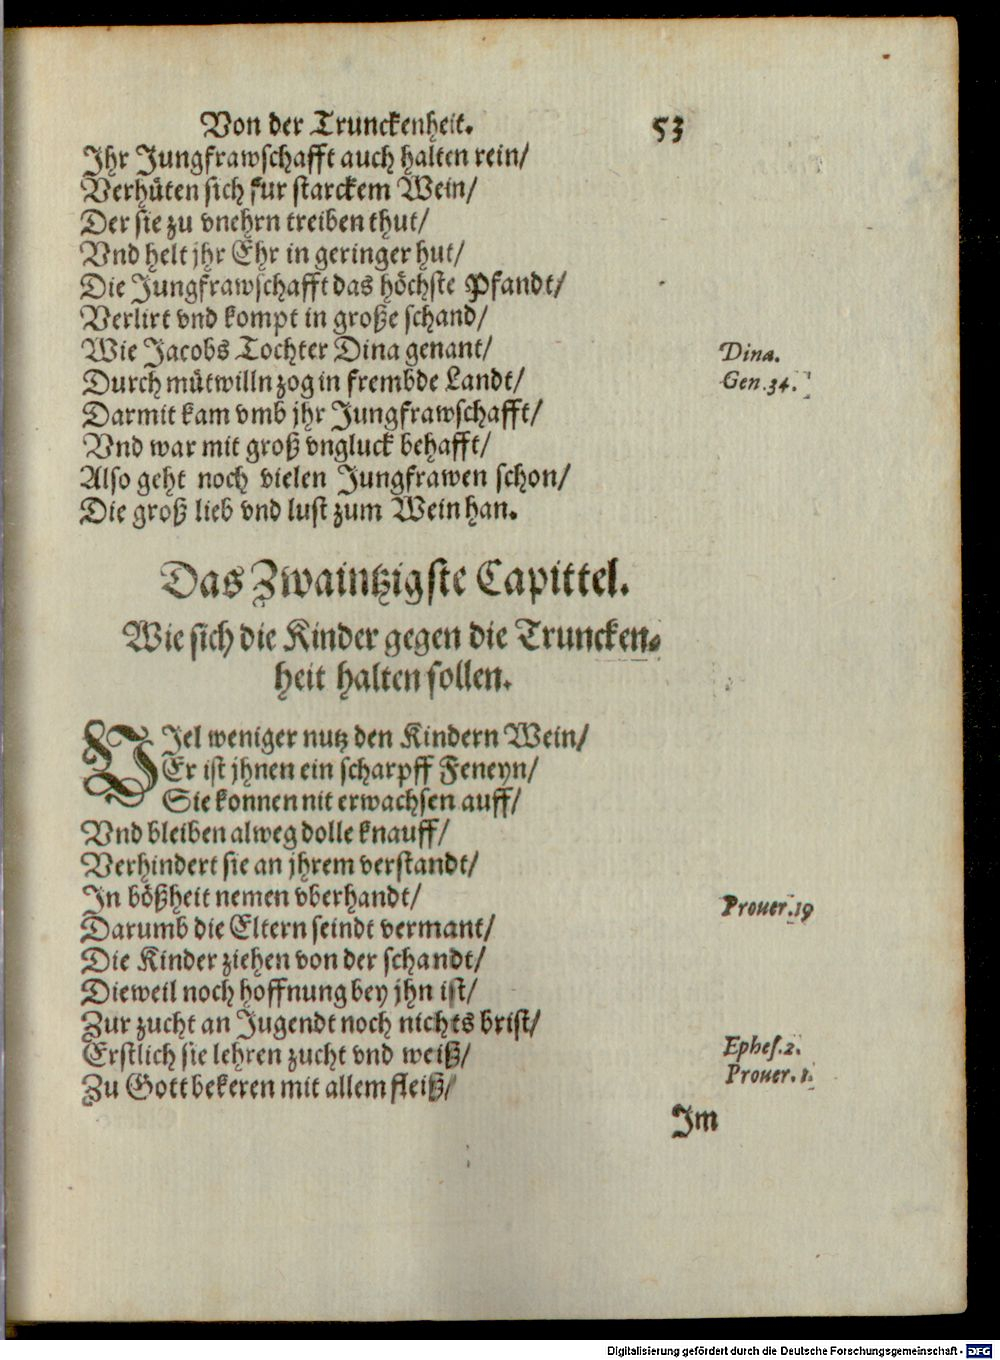 Von der Trunckenheit. 53
Ihr Jungfrawschafft auch halten rein/
Verhüten sich fur starckem Wein/
Der sie zu vnehrn treiben thut/
Vnd helt jhr Ehr in geringer hut/
Die Jungfrawschafft das höchste Pfandt/
Verlirt vnd kompt in große schand/
Wie Jacobs Tochter Dina genant/ Dina.
Durch mütwilln zog in frembde Landt/ Gen. 34.
Darmit kam vmb jhr Jungfrawschafft/
Vnd war mit groß vngluck behafft/
Also geht noch vielen Jungfrawen schon/
Die groß lieb vnd lust zum Wein han.
Das Zwaintzigste Capittel.
Wie sich die Kinder gegen die Truncken-
heit halten sollen.
VIel weniger nutz den Kindern Wein/
Er ist jhnen ein scharpff Feneyn/
Sie konnen nit erwachsen auff/
Vnd bleiben alweg dolle knauff/
Verhindert sie an jhrem verstandt/
In bößheit nemen vberhandt/ Prouer. 19
Darumb die Eltern seindt vermant/
Die Kinder ziehen von der schandt/
Dieweil noch hoffnung bey jhn ist/
Zur zucht an Jugendt noch nichts brist/
Erstlich sie lehren zucht vnd weiß/ Ephes. 2.
Zu Gott bekeren mit allem fleiß/ Prouer. 1.
Im
Digitalisierung gefördert durch die Deutsche Forschungsgemeinschaft - DFG